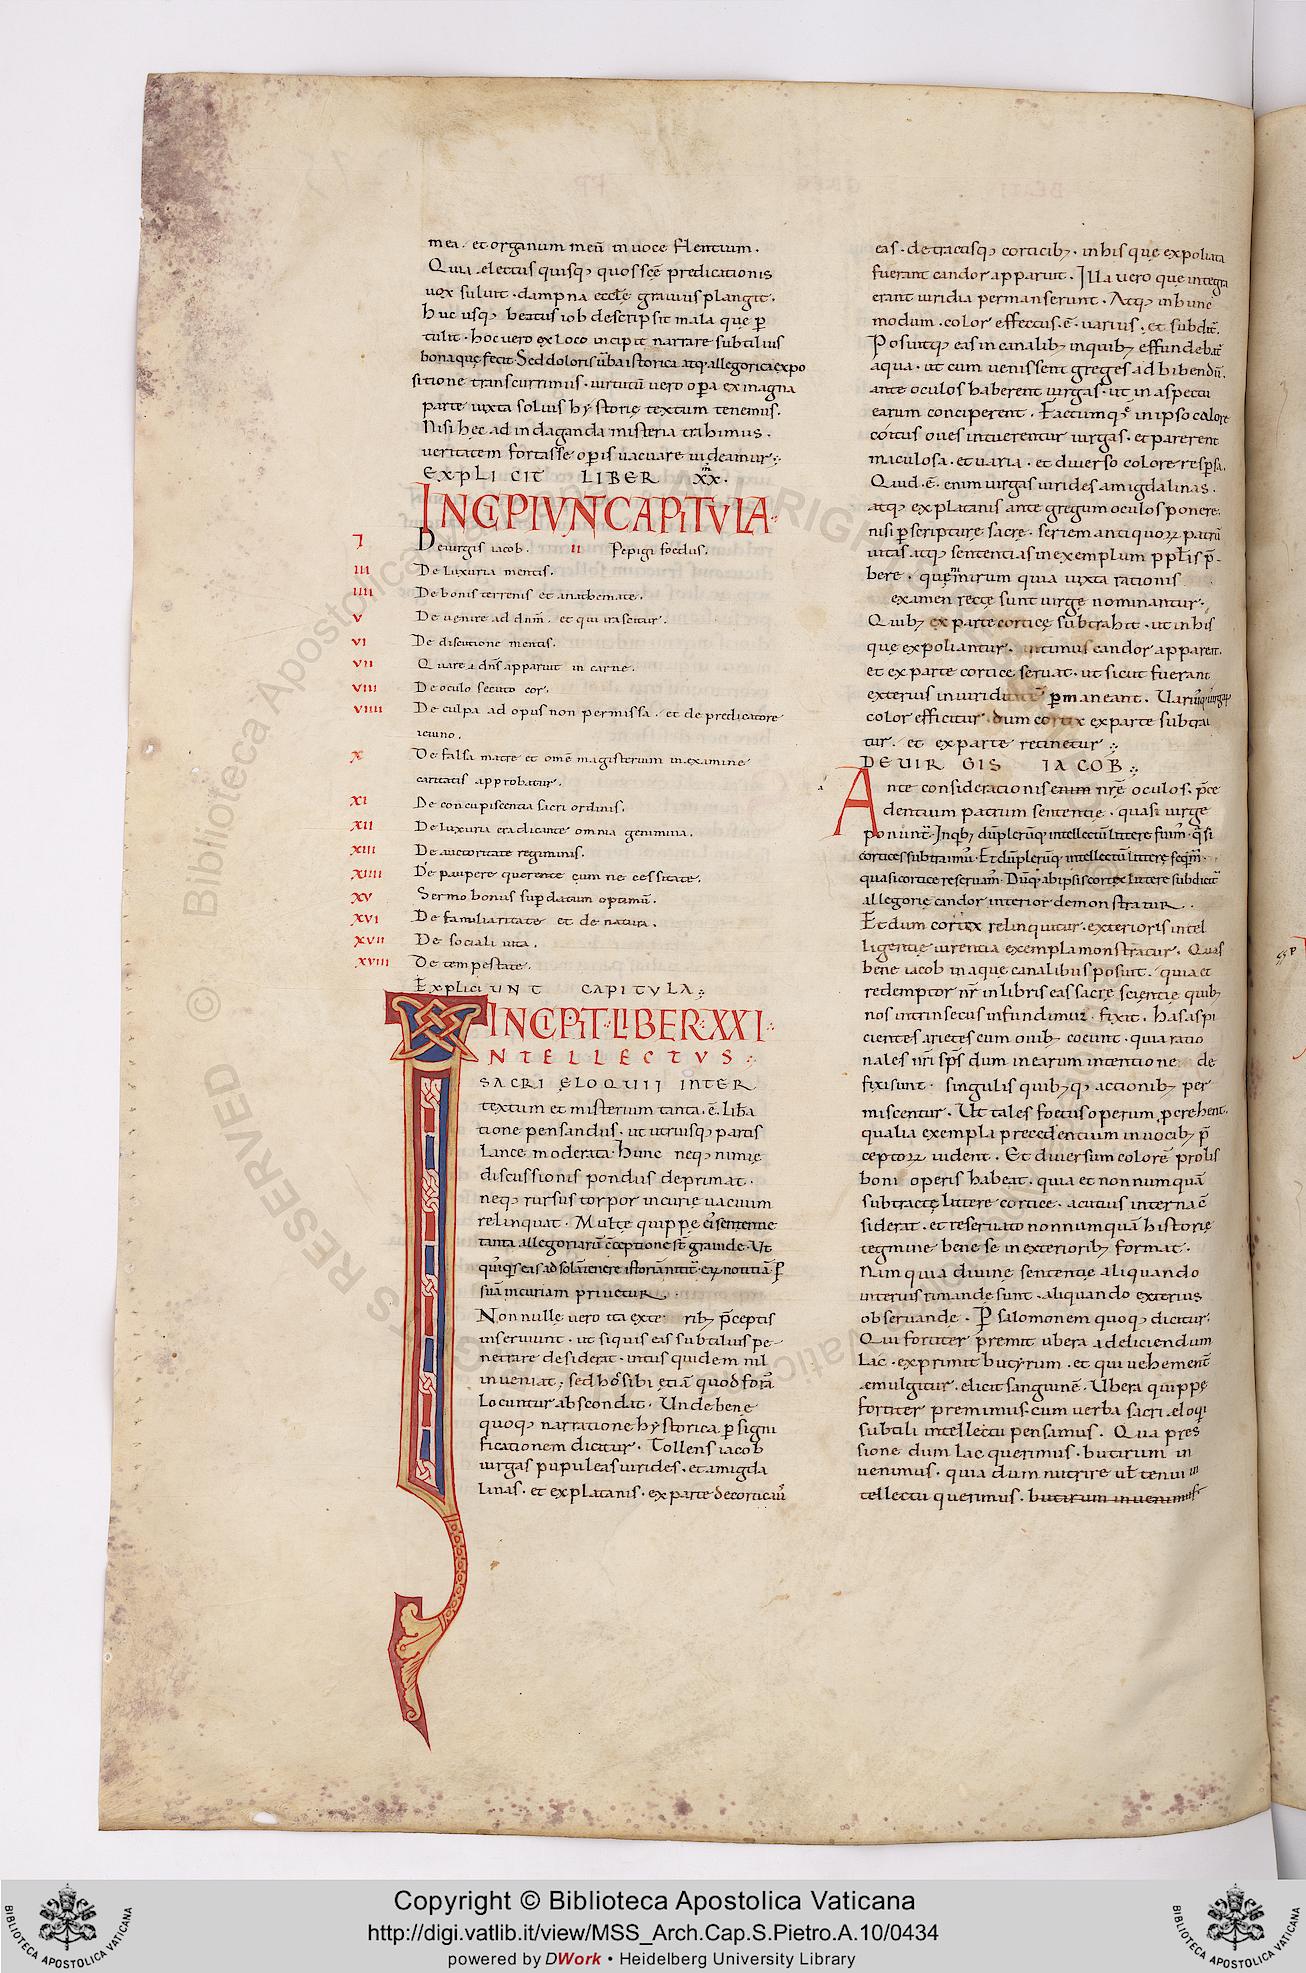 mea. et organum meū in uoce flentium.
Quia electus quisq; quos sc̄ę predicationis
uox soluit. dampna eccl̄ę grauius plangit.
Huc usq; beatus iob descripsit mala quę p̄
tulit. hoc uero ex loco incipit narrare subtilius
bona quę fecit. Sed doloris ūba istorica atq; allegorica expo
sitione transcurrimus. uirtutū uero op̄a ex magna
parte iuxta solius hystorię textum tenemus.
Nisi hęc ad indaganda misteria trahimus.
ueritatem fortasse op̄is uacuare uideamur.
EXPLICIT LIBER XX.
INCIPIUNT CAPITULA
I De uirgis iacob. II Pepigi foedus.
III De luxuria mentis.
IIII De bonis terrenis et anathemate.
V De uenire ad dn̄m. et qui irascitur.
VI De discutione mentis.
VII Quare dn̄s apparuit in carne.
VIII De oculo secuto cor.
VIIII De culpa ad opus non permissa. et de predicatore
ieiuno.
X De falsa matre et om̄e magisterium in examine
caritatis approbatur.
XI De concupiscentia sacri ordinis.
XII De luxuria eradicante omnia genimina.
XIII De auctoritate regiminis.
XIIII De paupere querente cum necessitate.
XV Sermo bonus sup̄ datum optimū.
XVI De familiaritate et de natura.
XVII De sociali uita.
XVIII De tempestate.
EXPLICIUNT CAPITULA.
INCIPIT LIBER XXI
INTELLECTUS
SACRI ELOQUII INTER
textum et misterium tanta. ē. libra
tione pensandus. ut utriusq; partis
lance moderata. hunc neq; nimię
discussionis pondus deprimat.
neq; rursus torpor incurię uacuum
relinquat. Multę quippe ei sententię
tanta allegoriarū c̄ceptione st̄ grauidę. Ut
eas ad solā tenere istoriā
suā incuriam priuetur.
Nonnulle uero ita exterioribꝫ p̄ceptis
inseruiunt. ut siquis eas subtilius pe-
netrare desiderat. intus quidem nil
inueniat; sed hoc sibi etiā quod foras
locuntur abscondat. Unde bene
quoq; narratione hystorica. p̄ signi
ficationem dicitur. Tollens iacob
uirgas pupuleas uirides. et amigda
linas. et ex platanis. ex parte decorticauit
eas. detractisq; corticibꝫ. in his quę expoliata
fuerant candor apparuit. Illa uero que integra
erant uiridia permanserunt. Atq; in hunc
modum. color effectus. ē. uarius. et subdit̄.
Posuitq; eas in canalibꝫ in quibꝫ effundebat̄
aqua. ut cum uenissent greges ad bibendū.
ante oculos haberent uirgas. ut in aspectu
earum conciperent. Factumq; ē in ipso calore
coitus oues intuerentur uirgas. et parerent
maculosa. et uaria. et diuerso colore resp̄sa.
Quid. ē. enim uirgas uirides amigdalinas.
atq; ex platanis ante gregum oculos ponere.
nisi p̄ scripturę sacrę. seriem antiquoꝝ patrū
uitas atq; sententias in exemplum ppl̄is p̄
bere. quę nimirum quia iuxta rationis
examen recte sunt uirgę nominantur.
Quibꝫ ex parte corticę subtrahit. ut in his
quę expoliantur. intimus candor appareat.
et ex parte cortice seruat. ut sicut fuerant
exterius in uiriditate p̄maneant. Uariusq; uirgarꝝ
color efficitur. dum cortex ex parte subtrai
tur. et ex parte retinetur.
DE UIRGIS IACOB.
Ante considerationis enim nrē oculos. p̄ce
dentium patrum sententię. quasi uirgę
ponunt̄. In qibꝫ dū plerūq; intellectū litterę fugim̄. q̄si
cortices subtraimꝰ. Et dū plerūq; intellectū litterę seqim̄.
quasi cortice reseruam̄. Dūq; ab ipsis cortex litterę subdicit̄
allegorię candor interior demonstratur.
Et dum cortex relinquitur. exterioris intel
ligentię uirentia exempla monstratur. Quas
bene iacob in aquę canalibus posuit. quia et
redemptor nr̄ in libris eas sacrę scientię quibꝫ
nos intrinsecus infundimur. fixit. Has aspi
cientes arietes cum ouibꝫ coeunt. quia ratio
nales nr̄i sp̄s dum in earum intentione de
fixi sunt. singulis quibꝫq; actionibꝫ per
miscentur. Ut tales foetus operum percrehent.
qualia exempla precedentium in uocibꝫ p̄
ceptoꝝ uident. Et diuersum colorē prolis
boni operis habeat. quia et nonnumquā
subtracte litterę cortice. acutius interna c̄
siderat. et reseruato nonnumquā historię
tegmine bene se in exterioribꝫ format.
Nam quia diuinę sententię aliquando
interius rimandę sunt. aliquando exterius
obseruandę. P̄ salomonem quoq; dicitur.
Qui fortiter premit ubera ad eliciendum
lac. exprimit butyrum. et qui uehement̄
emulgitur. elicit sanguinē. Ubera quippe
fortiter premimus. cum uerba sacri eloqui
subtili intellectu pensamus. Qua pres
sione dum lac querimus. butirum in
uenimus. quia dum nutrire ul̄ tenui in
tellectu querimus. butirum inuenimus
Copyright © Biblioteca Apostolica Vaticana
http://digi.vatlib.it/view/MSS_Arch.Cap.S.Pietro.A.10/0434
powered by DWork • Heidelberg University Library
BIBLIOTECA APOSTOLICA VATICANA
BIBLIOTECA APOSTOLICA VATICANA